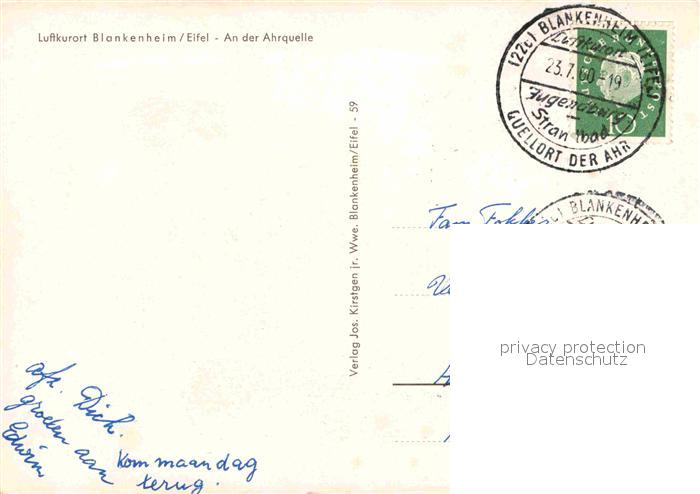 Luftkurort Blankenheim/Eifel - An der Ahrquelle
(22c) BLANKENHEIM (EIFEL)
Luftkurort
23.7.60-19
Jugendburg
Strandbad
QUELLORT DER AHR
BLANKENHE
Fam
Verlag Jos. Kirstgen jr. Wwe. Blankenheim/Eifel - 59
privacy protection
Datenschutz
afz. Dich.
groeten aan
Edwin
kom maandag
terug.